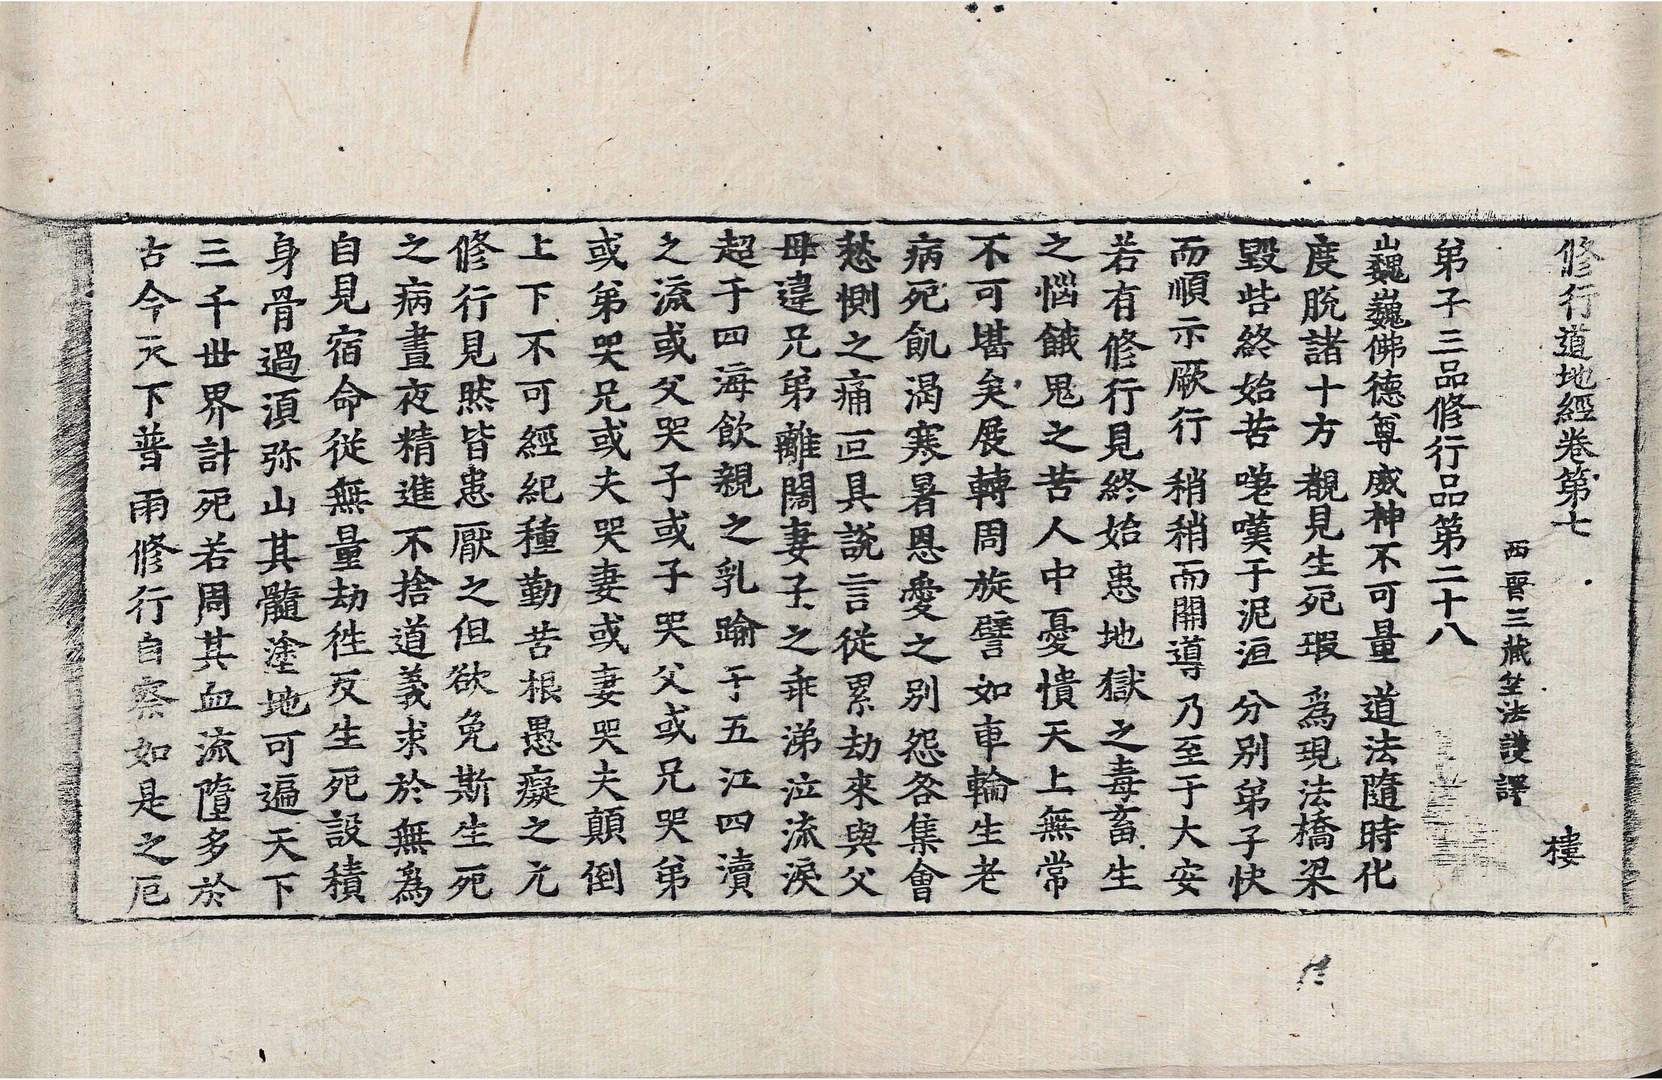 修行道地經卷第七 樓
西晉三藏竺法護譯
弟子三品修行品第二十八
巍巍佛德尊威神不可量 道法隨時化
度脫諸十方 覩見生死瑕 爲現法橋梁
毀呰終始苦 嗟嘆于泥洹 分別弟子快
而順示厥行 稍稍而開導 乃至于大安
若有修行見終始患地獄之毒畜生
之惱餓鬼之苦人中憂憒天上無常
不可堪矣展轉周旋譬如車輪生老
病死飢渴寒暑恩愛之別怨各集會
愁惻之痛叵具說言從累劫來與父
母違兄弟離闊妻子之乖涕泣流淚
超于四海飲親之乳踰于五江四瀆
之流或父哭子或子哭父或兄哭弟
或弟哭兄或夫哭妻或妻哭夫顛倒
上下不可經紀種勤苦根愚癡之元
修行見然皆患厭之但欲免斯生死
之病晝夜精進不捨道義求於無爲
自見宿命從無量劫徃反生死設積
身骨過湏弥山其髓塗地可遍天下
三千世界計死若周其血流墮多於
古今天下普雨修行自察如是之厄